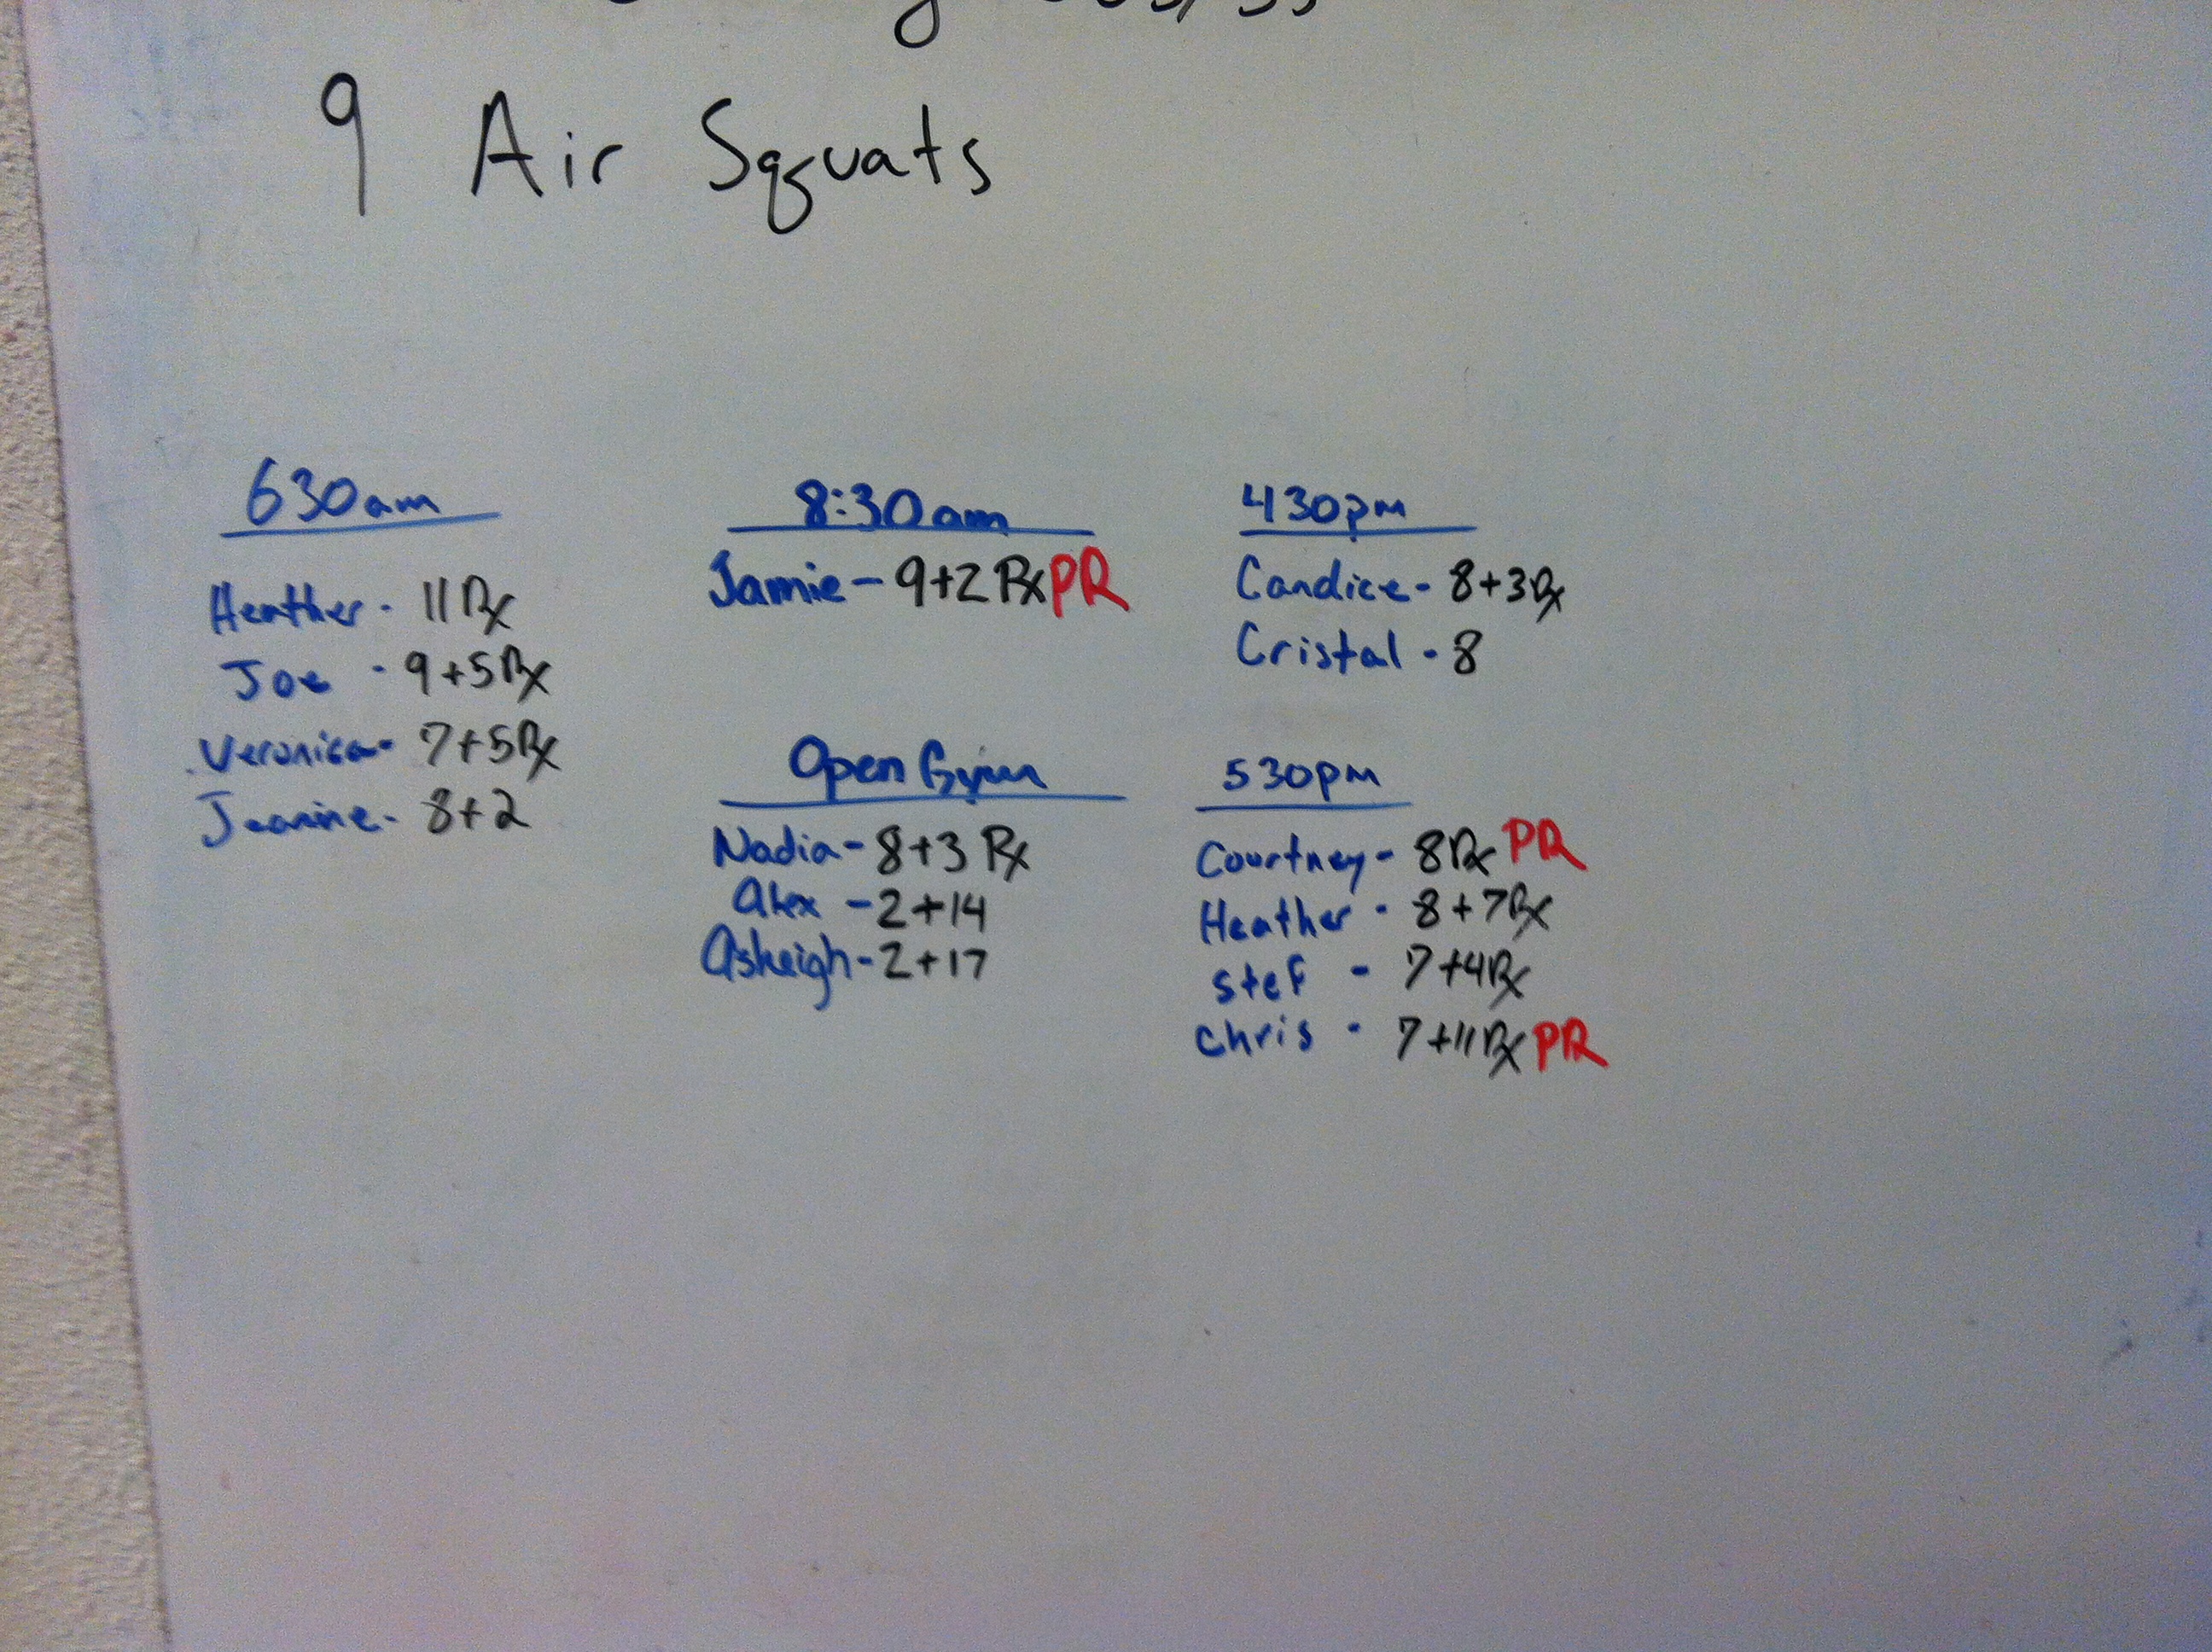 9 Air Squats
630am
Heather - 11 Rx
Joe - 9+5 Rx
Veronica - 7+5 Rx
Jeanine - 8+2
8:30am
Jamie - 9+2 Rx PR
Open Gym
Nadia - 8+3 Rx
Alex - 2+14
Ashleigh - 2+17
430pm
Candice - 8+3 Rx
Cristal - 8
530pm
Courtney - 8 Rx PR
Heather - 8+7 Rx
Stef - 7+4 Rx
Chris - 7+11 Rx PR